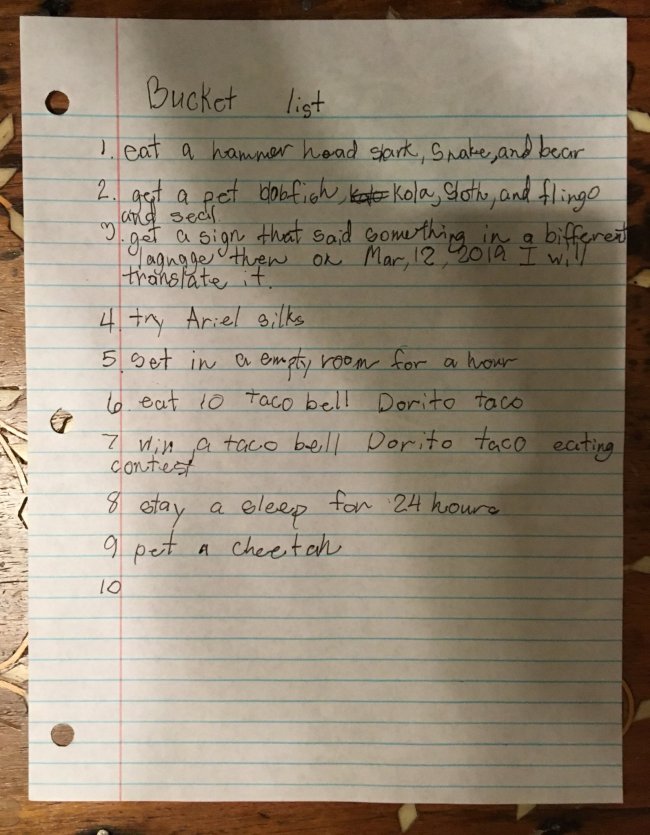 Bucket list
1. eat a hammer head shark, Snake, and bear
2. get a pet blobfish, Kola, Sloth, and flingo
and seal
3. get a sign that said something in a bifferent
lagnagge then on Mar, 12, 2019 I will
translate it.
4. try Ariel silks
5. set in a empty room for a hour
6. eat 10 taco bell Dorito taco
7 win a taco bell Dorito taco eating
contest
8 stay a sleep for 24 hours
9 pet a cheetah
10